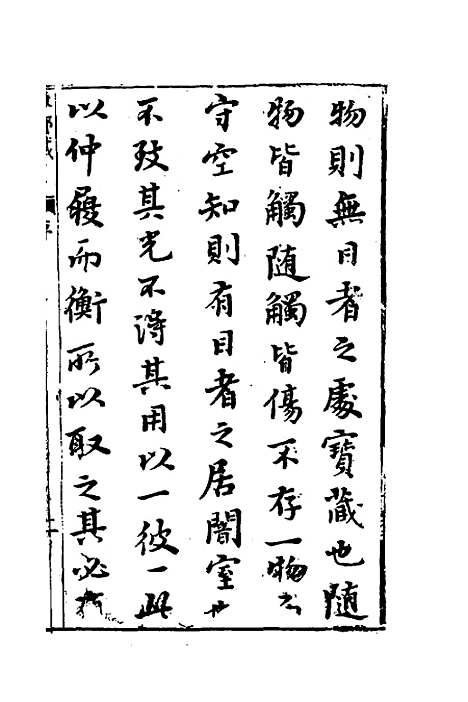 物則無目者之處寶藏也隨
物皆觸隨觸皆傷不存一物
守空知則有目者之居闇室也
不致其光不得其用以一彼一此
以仲尼而衡所以取之其必